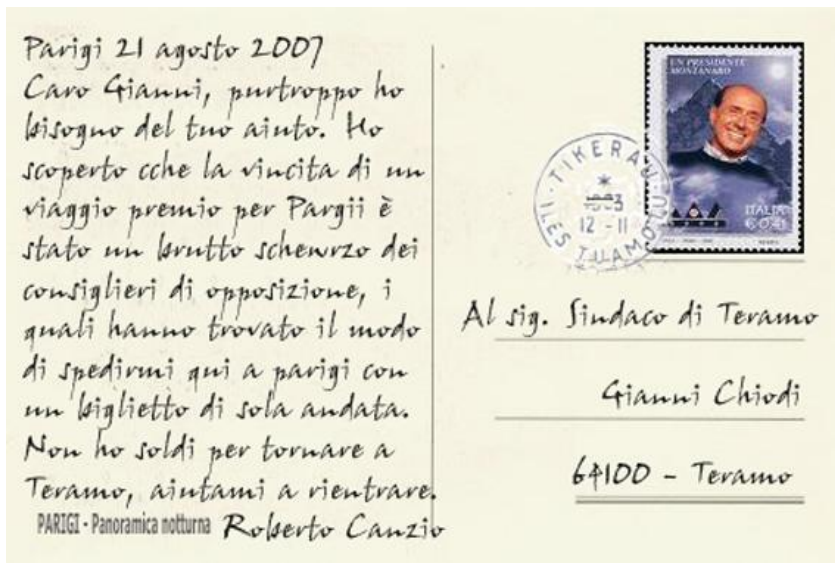 Parigi 21 agosto 2007
Caro Gianni, purtroppo ho
bisogno del tuo aiuto. Ho
scoperto cche la vincita di un
viaggio premio per Pargii è
stato un brutto schewrzo dei
consiglieri di opposizione, i
quali hanno trovato il modo
di spedirmi qui a parigi con
un biglietto di sola andata.
Non ho soldi per tornare a
Teramo, aiutami a rientrare.
PARIGI - Panoramica notturna Roberto Canzio
UN PRESIDENTE
MONZANARO
ITALIA
€ 0,41
TIKERAU
12 - 11
ILES TUAMOTU
Al sig. Sindaco di Teramo
Gianni Chiodi
64100 - Teramo